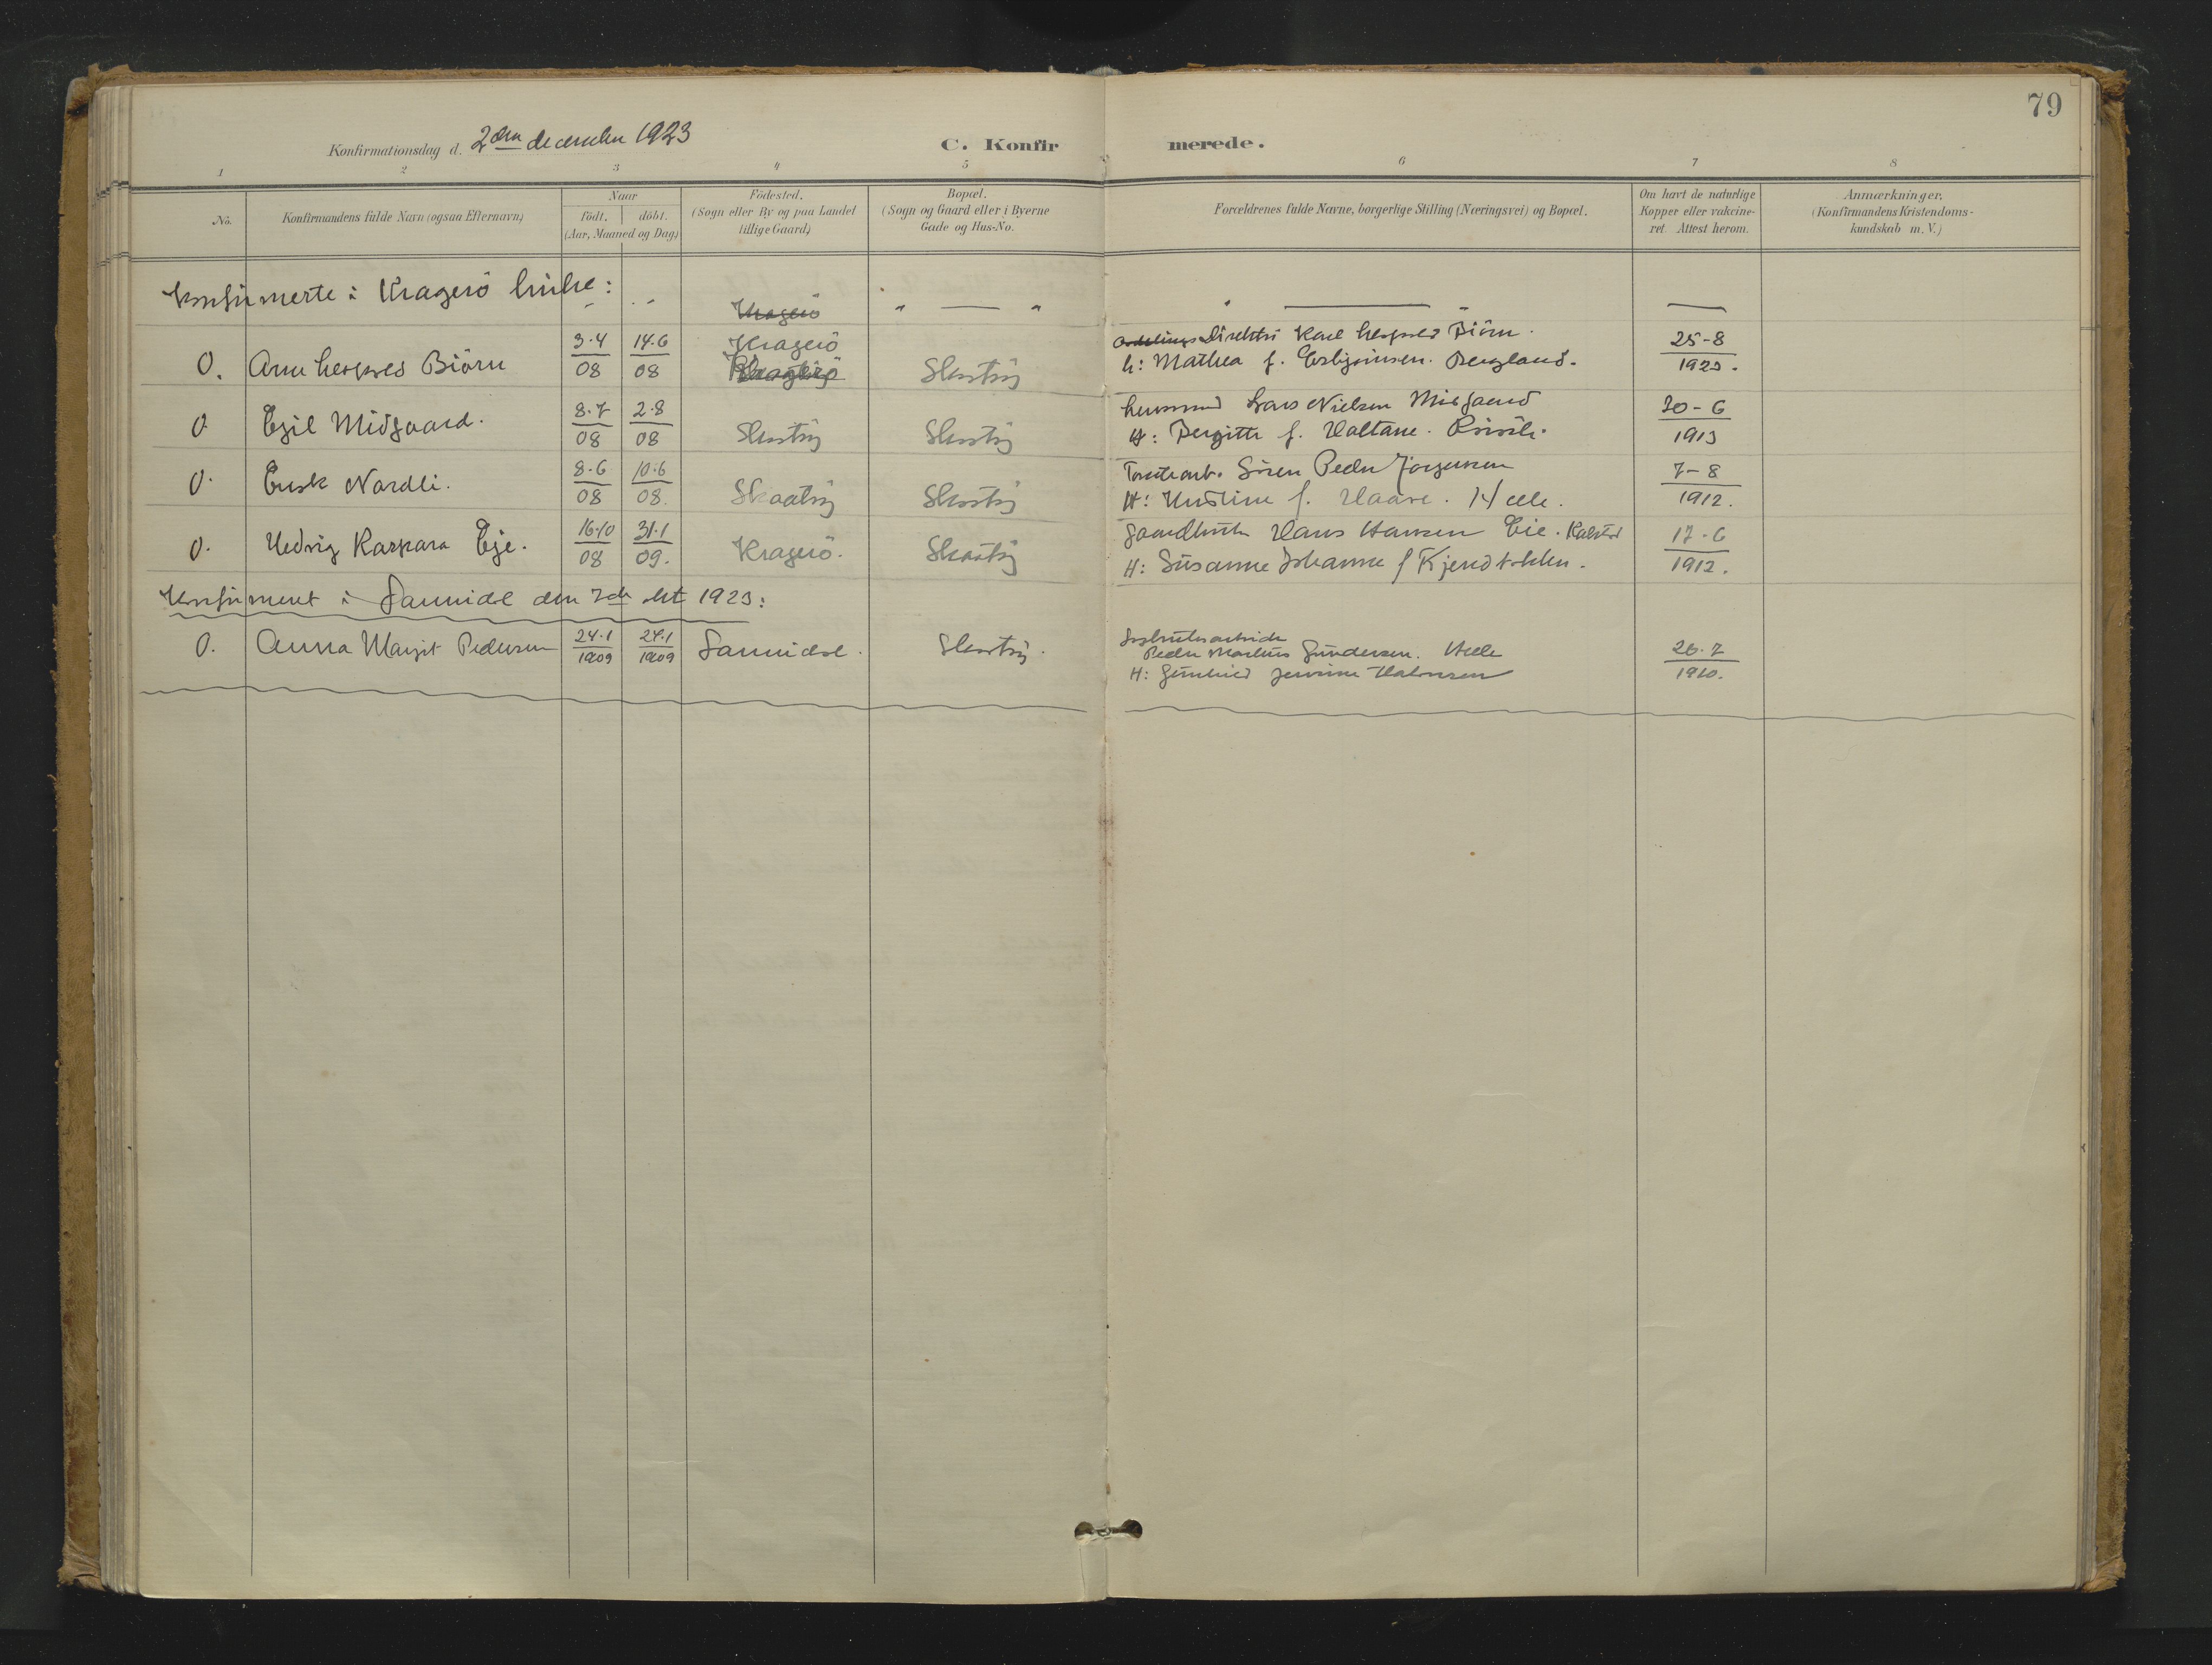 79
Konfirmationsdag d. 2den december 1923
C. Konfirmerede.
1 2 3 4 5 6 7 8
No.
Konfirmandens fulde Navn (ogsaa Efternavn)
Naar
födt. döbt.
(Aar, Maaned og Dag)
Födested.
(Sogn eller By og paa Landet
tillige Gaard)
Bopæl.
(Sogn og Gaard eller i Byerne
Gade og Hus-No.
Forældrenes fulde Navne, borgerlige Stilling (Næringsvei) og Bopæl.
Om havt de naturlige
Kopper eller vakcine-
ret. Attest herom.
Anmærkninger.
(Konfirmandens Kristendoms-
kundskab m. V.)
Konfirmerte i Kragerö kirke:
Kragerö
O. Biörn 3-4 08 14.6 08 Kragerö Skaatöy
Direktör Karl Biörn.
h: Mathea f. Bergland.
25-8
O Egil Midgaard. 8-7 08 2-8 08 Skaatöy Skaatöy
Lars Nielsen Midgaard
H: Bergitte f.
30-6 1913
O. Nardli. 8-6 08 10-6 08. Skaatöy Skaatöy
Sören Peder Jörgensen
H: f. Haave. Helle.
7-8 1912.
O. Hedvig Kaspara Eje. 16-10 08 31-1 09. Kragerö. Skaatöy
Hans Hansen Eie.
H: Susanne Johanne f
17-6 1912.
Konfirmert i Sannidal den 7de okt 1923:
O. Anna Margit Pedersen 24-1 1909 24-1 1909 Sannidal. Skaatöy.
Peder Gundersen. Helle
H: Halvorsen
26-7 1910.